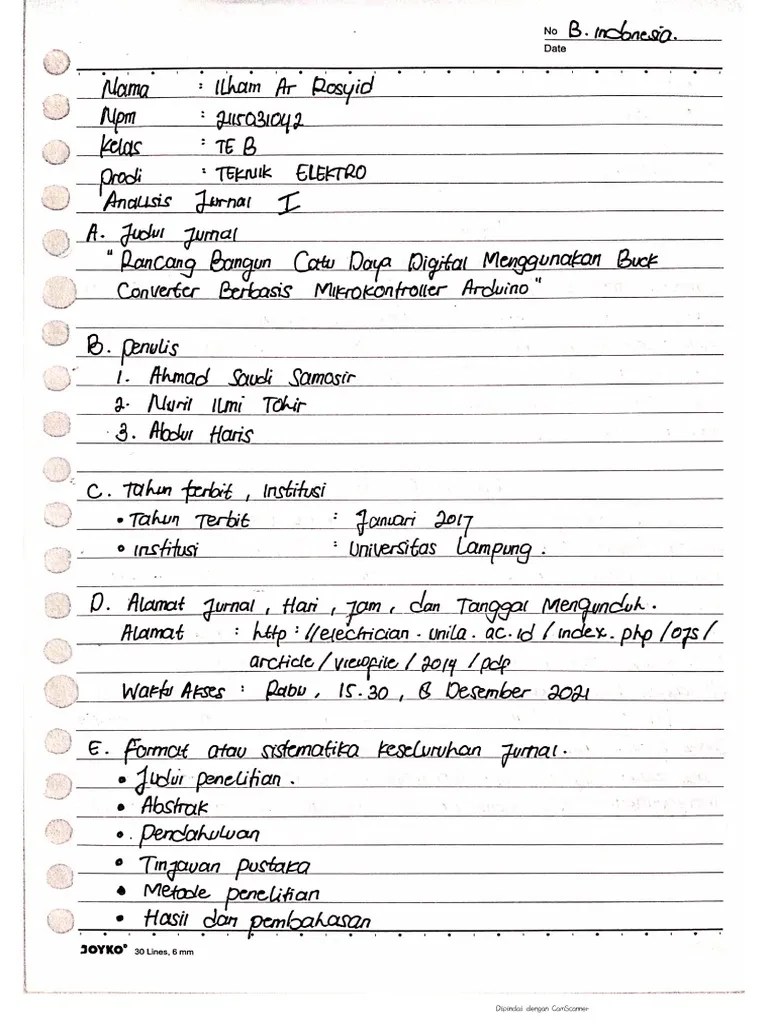 No B. Indonesia.
Date
Nama : Ilham Ar Rosyid
Npm : 2115031042
Kelas : TE B
Prodi : TEKNIK ELEKTRO
Analisis Jurnal I
A. Judul Jurnal
"Rancang Bangun Catu Daya Digital Menggunakan Buck
Converter Berbasis Mikrokontroller Arduino"
B. Penulis
1. Ahmad Saudi Samosir
2. Nuril Ilmi Tohir
3. Abdul Haris
C. Tahun terbit, Institusi
• Tahun Terbit : Januari 2017
• Institusi : Universitas Lampung.
D. Alamat Jurnal, Hari, Jam, dan Tanggal Mengunduh.
Alamat : http://electrician.unila.ac.id/index.php/ojs/
arcticle/viewfile/2014/pdf
Waktu Akses : Rabu, 15.30, 8 Desember 2021
E. Format atau sistematika keseluruhan Jurnal.
• Judul penelitian.
• Abstrak
• Pendahuluan
• Tinjauan pustaka
• Metode penelitian
• Hasil dan pembahasan
JOYKO® 30 Lines, 6 mm
Dipindai dengan CamScanner